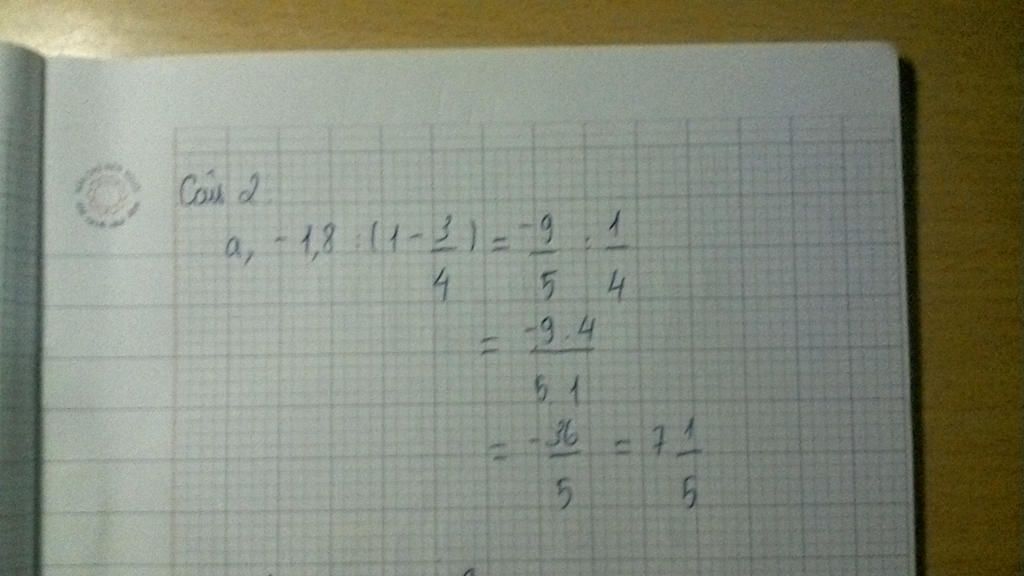 Câu 2
a, -1,8 : (1 - 3/4) = -9/5 : 1/4
= -9 . 4 / 5 . 1
= -36/5 = 7 1/5